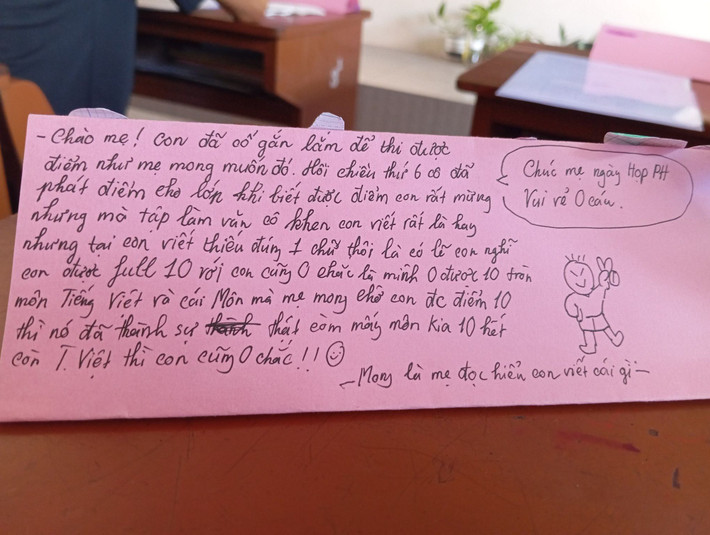 - Chào mẹ! Con đã cố gắn lắm để thi được
điểm như mẹ mong muốn đó. Hồi chiều thứ 6 cô đã
phát điểm cho lớp khi biết được điểm con rất mừng
nhưng mà tập làm văn cô khen con viết rất là hay
nhưng tại con viết thiếu đúng 1 chữ thôi là có lẽ con nghĩ
con được full 10 rồi con cũng 0 chắc là mình 0 được 10 tròn
môn Tiếng Việt và cái Môn mà mẹ mong chờ con đc điểm 10
thì nó đã thành sự thật còm mấy môn kia 10 hết
còn T. Việt thì con cũng 0 chắc!!
- Mong là mẹ đọc hiển con viết cái gì -
Chúc mẹ ngày Họp PH
Vui vẻ 0 cáu.